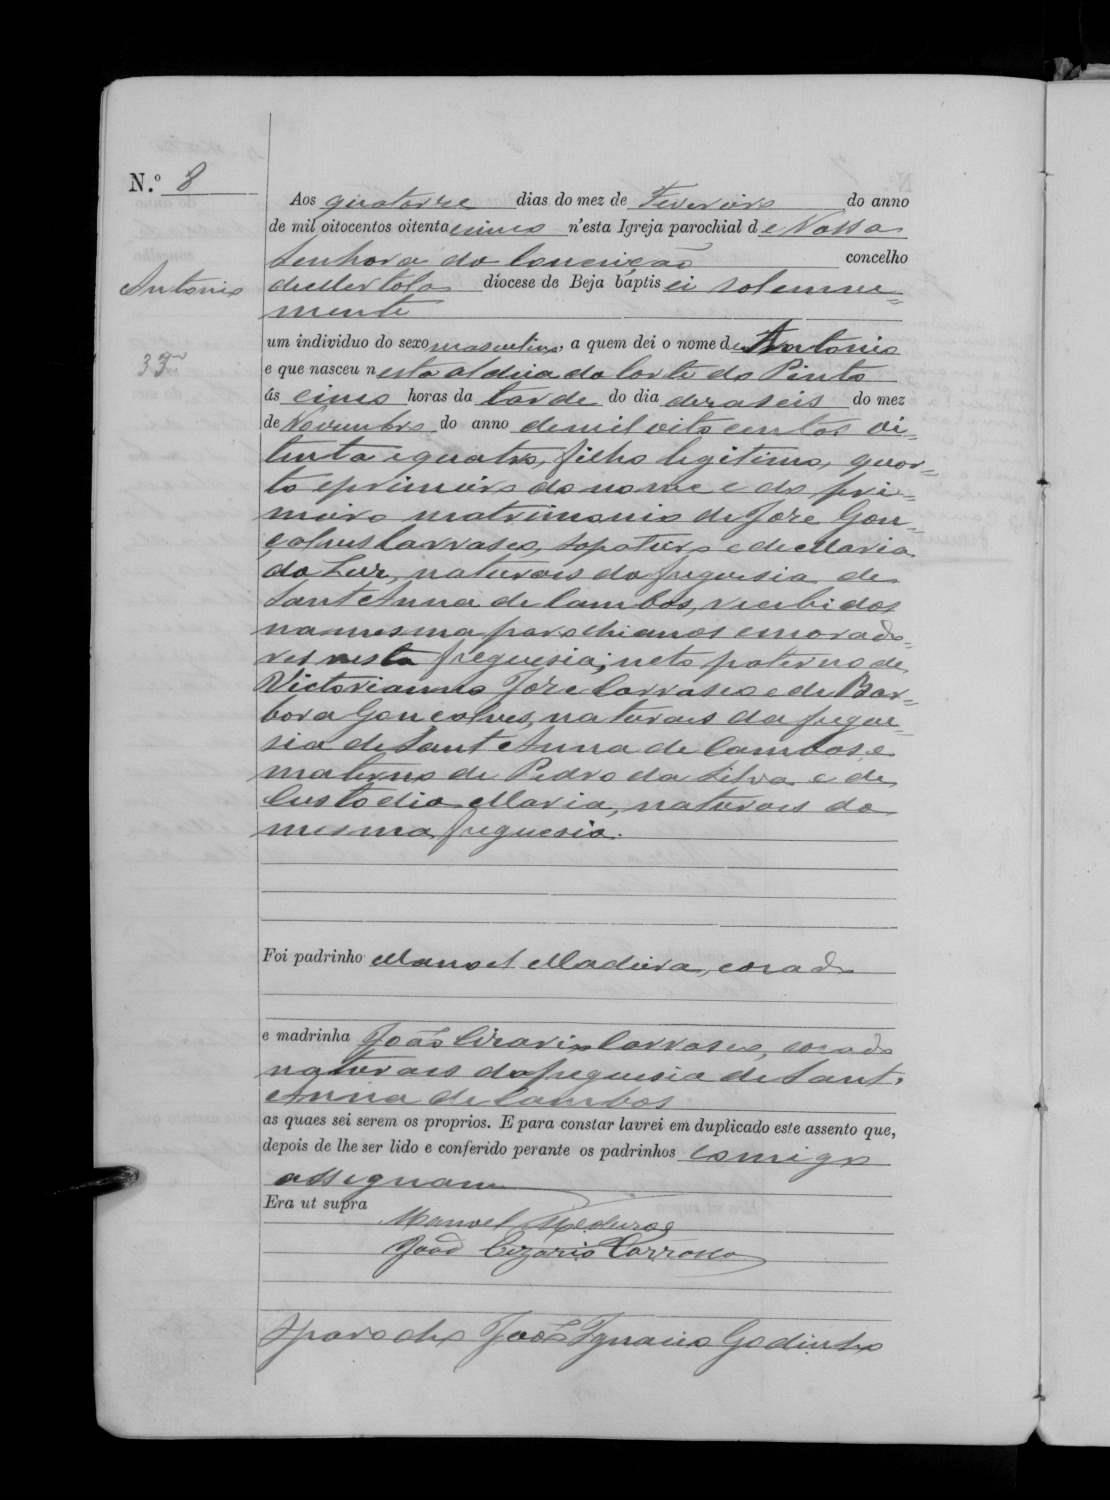 N.º 8
Aos quatorze dias do mez de Fevereiro do anno
de mil oitocentos oitenta cinco n'esta Igreja parochial de Nossa
Senhora da Conceição concelho
Antonio
de Mertola diocese de Beja baptisei solemne=
mente
um individuo do sexo masculino, a quem dei o nome de Antonio
e que nasceu n esta aldeia da Corte do Pinto
ás cinco horas da tarde do dia dezaseis do mez
de Novembro do anno de mil oito centos oi=
tenta e quatro, filho legitimo, quar=
to e primeiro do nome e do pri=
meiro matrimonio de Joze Gon=
çalves Carrasco, sapateiro e de Maria
da Luz, naturaes da freguesia de
Sant'Anna de Cambas, recebidos
na mesma parochianos e morado=
res nesta freguesia; neto paterno de
Victorianno Joze Carrasco e de Bar=
bora Gonçalves, naturaes da fregue=
sia de Sant'Anna de Cambas e
materno de Pedro da Silva e de
Custodia Maria, naturaes da
mesma freguesia.
Foi padrinho Manoel Madeira, casado
e madrinha João Cizario Carrasco, casado
naturaes da freguesia de Sant'
Anna de Cambas
as quaes sei serem os proprios. E para constar lavrei em duplicado este assento que,
depois de lhe ser lido e conferido perante os padrinhos comigo
assignam
Era ut supra
Manoel
João Cizario Carrasco
O parocho João Ignacio Godinho